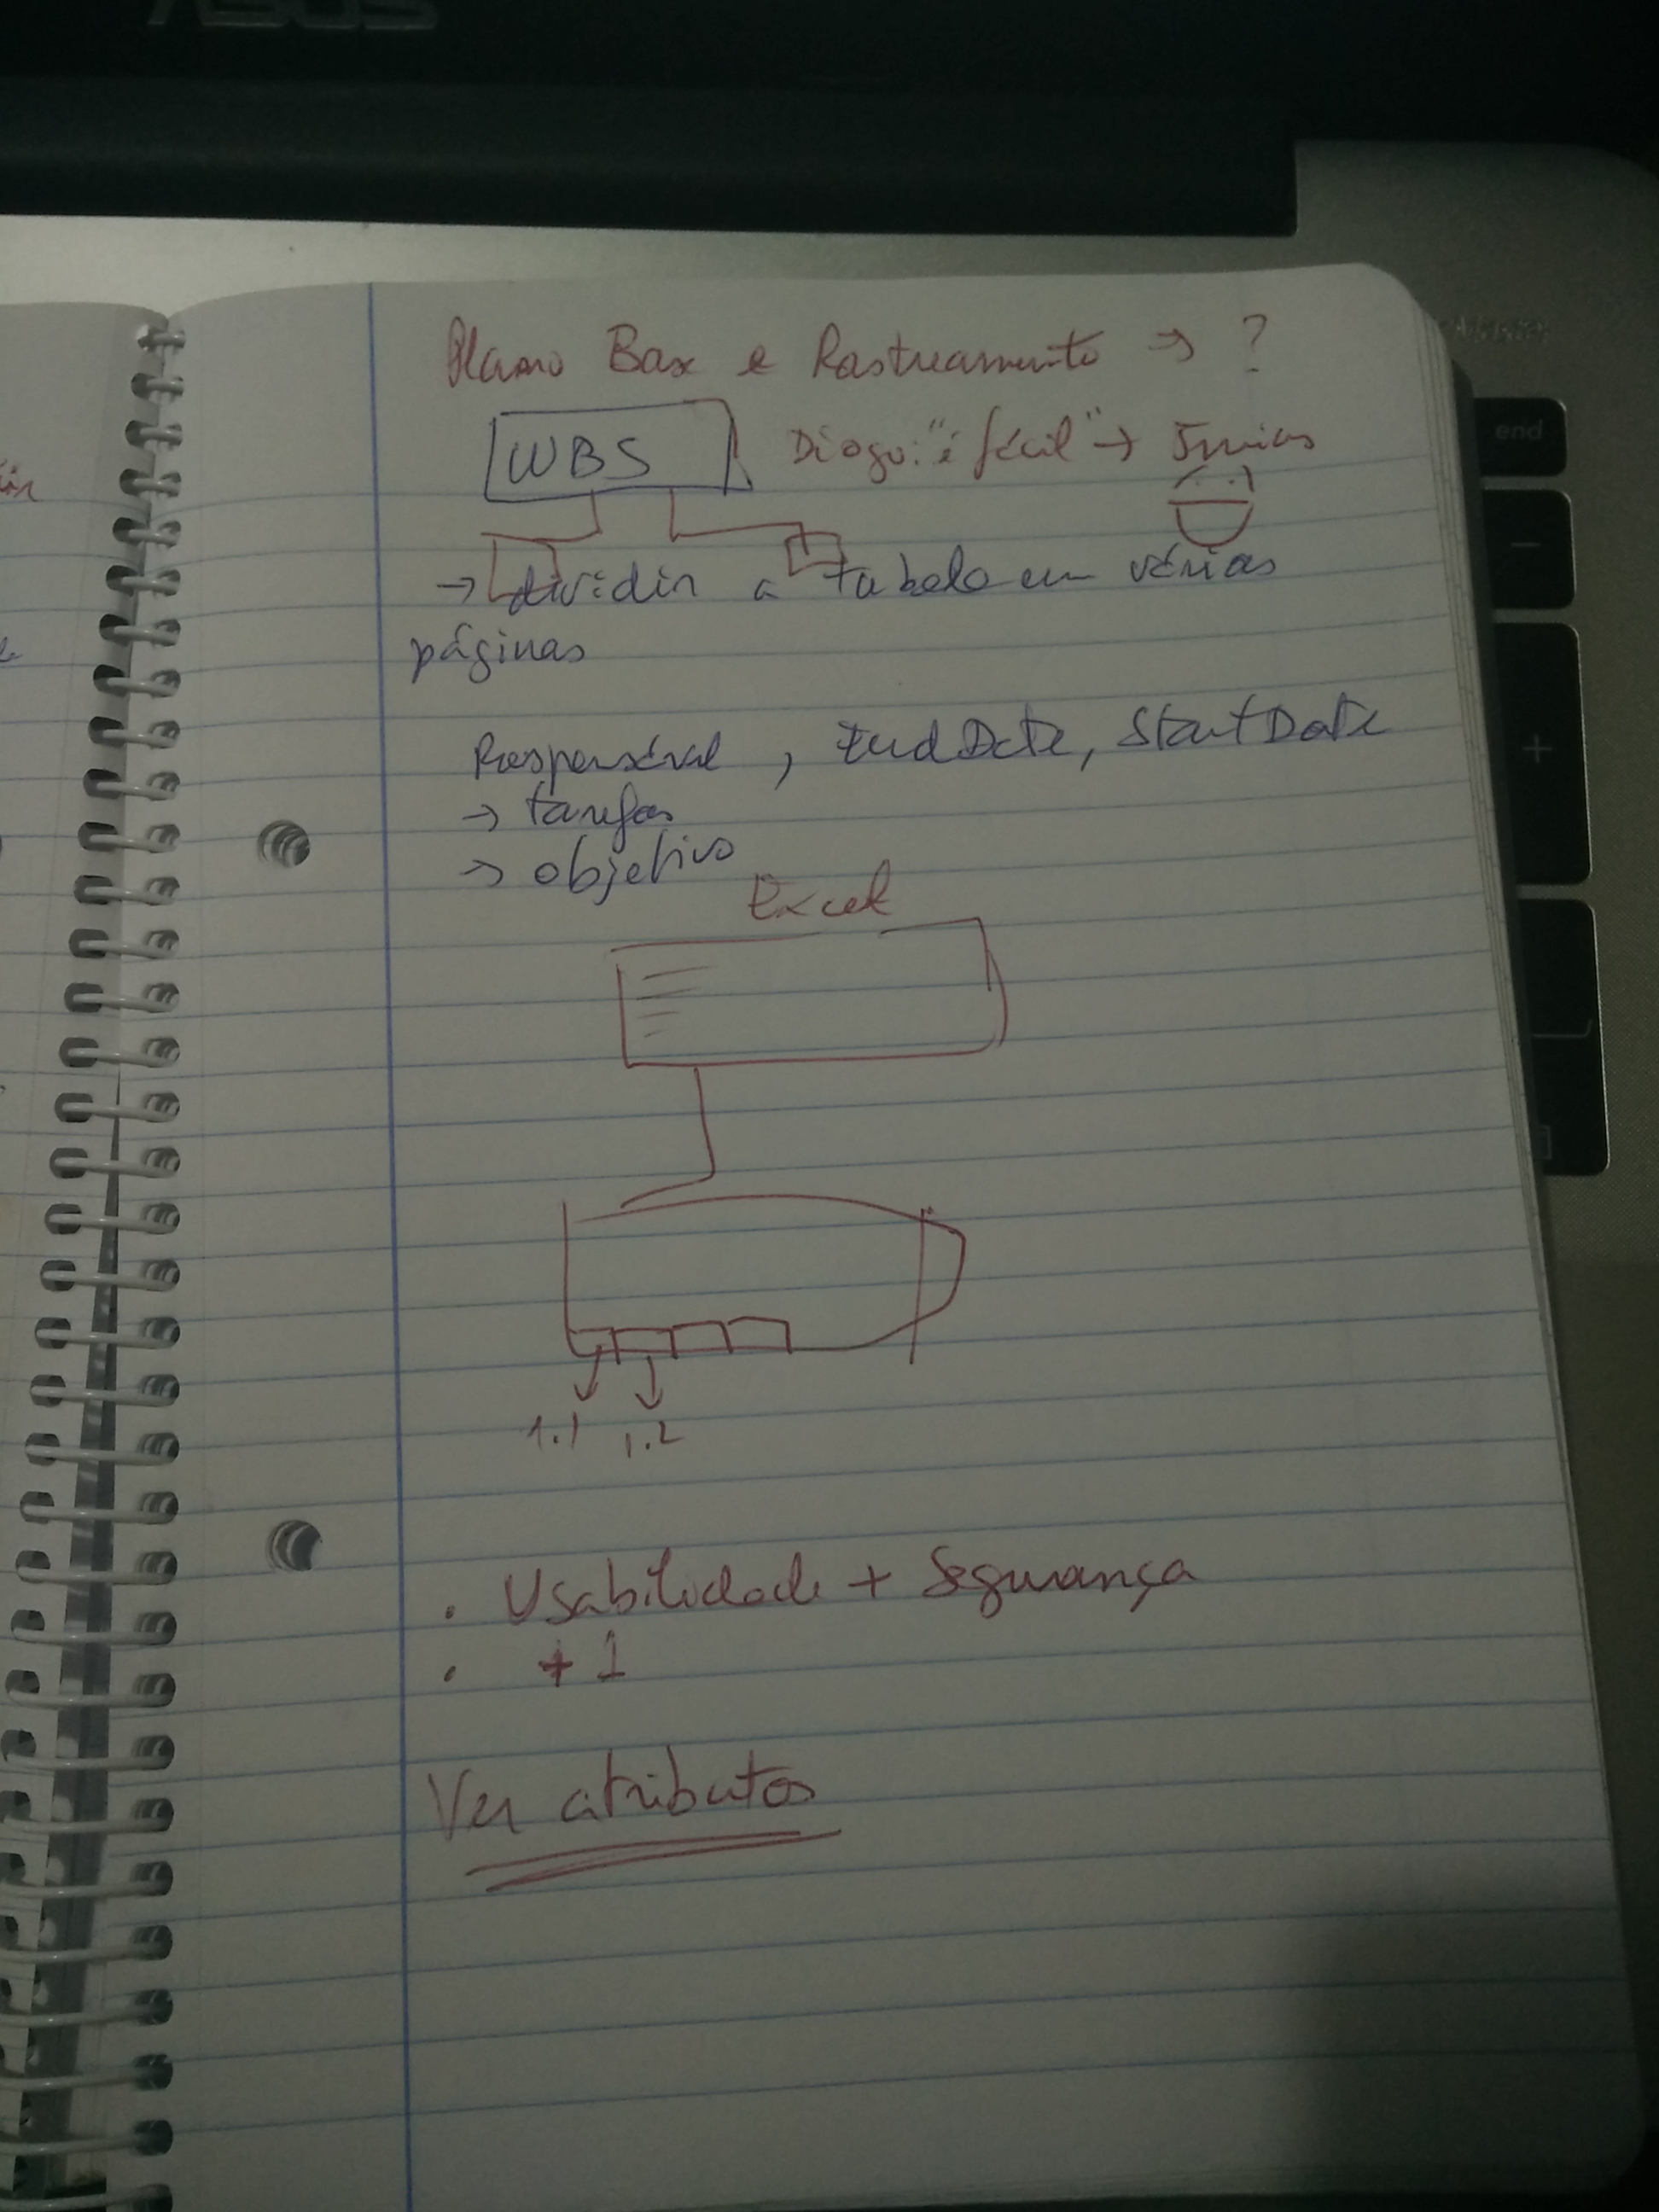 ASUS
Plano Base e Rastreamento → ?
WBS
Diogo: "é fácil" →
→ dividir a tabela em várias
páginas
Responsável , EndDate, StartDate
→ tarefas
→ objetivo
Excel
1.1 1.2
. Usabilidade + Segurança
. + 1
Ver atributos
end
-
+